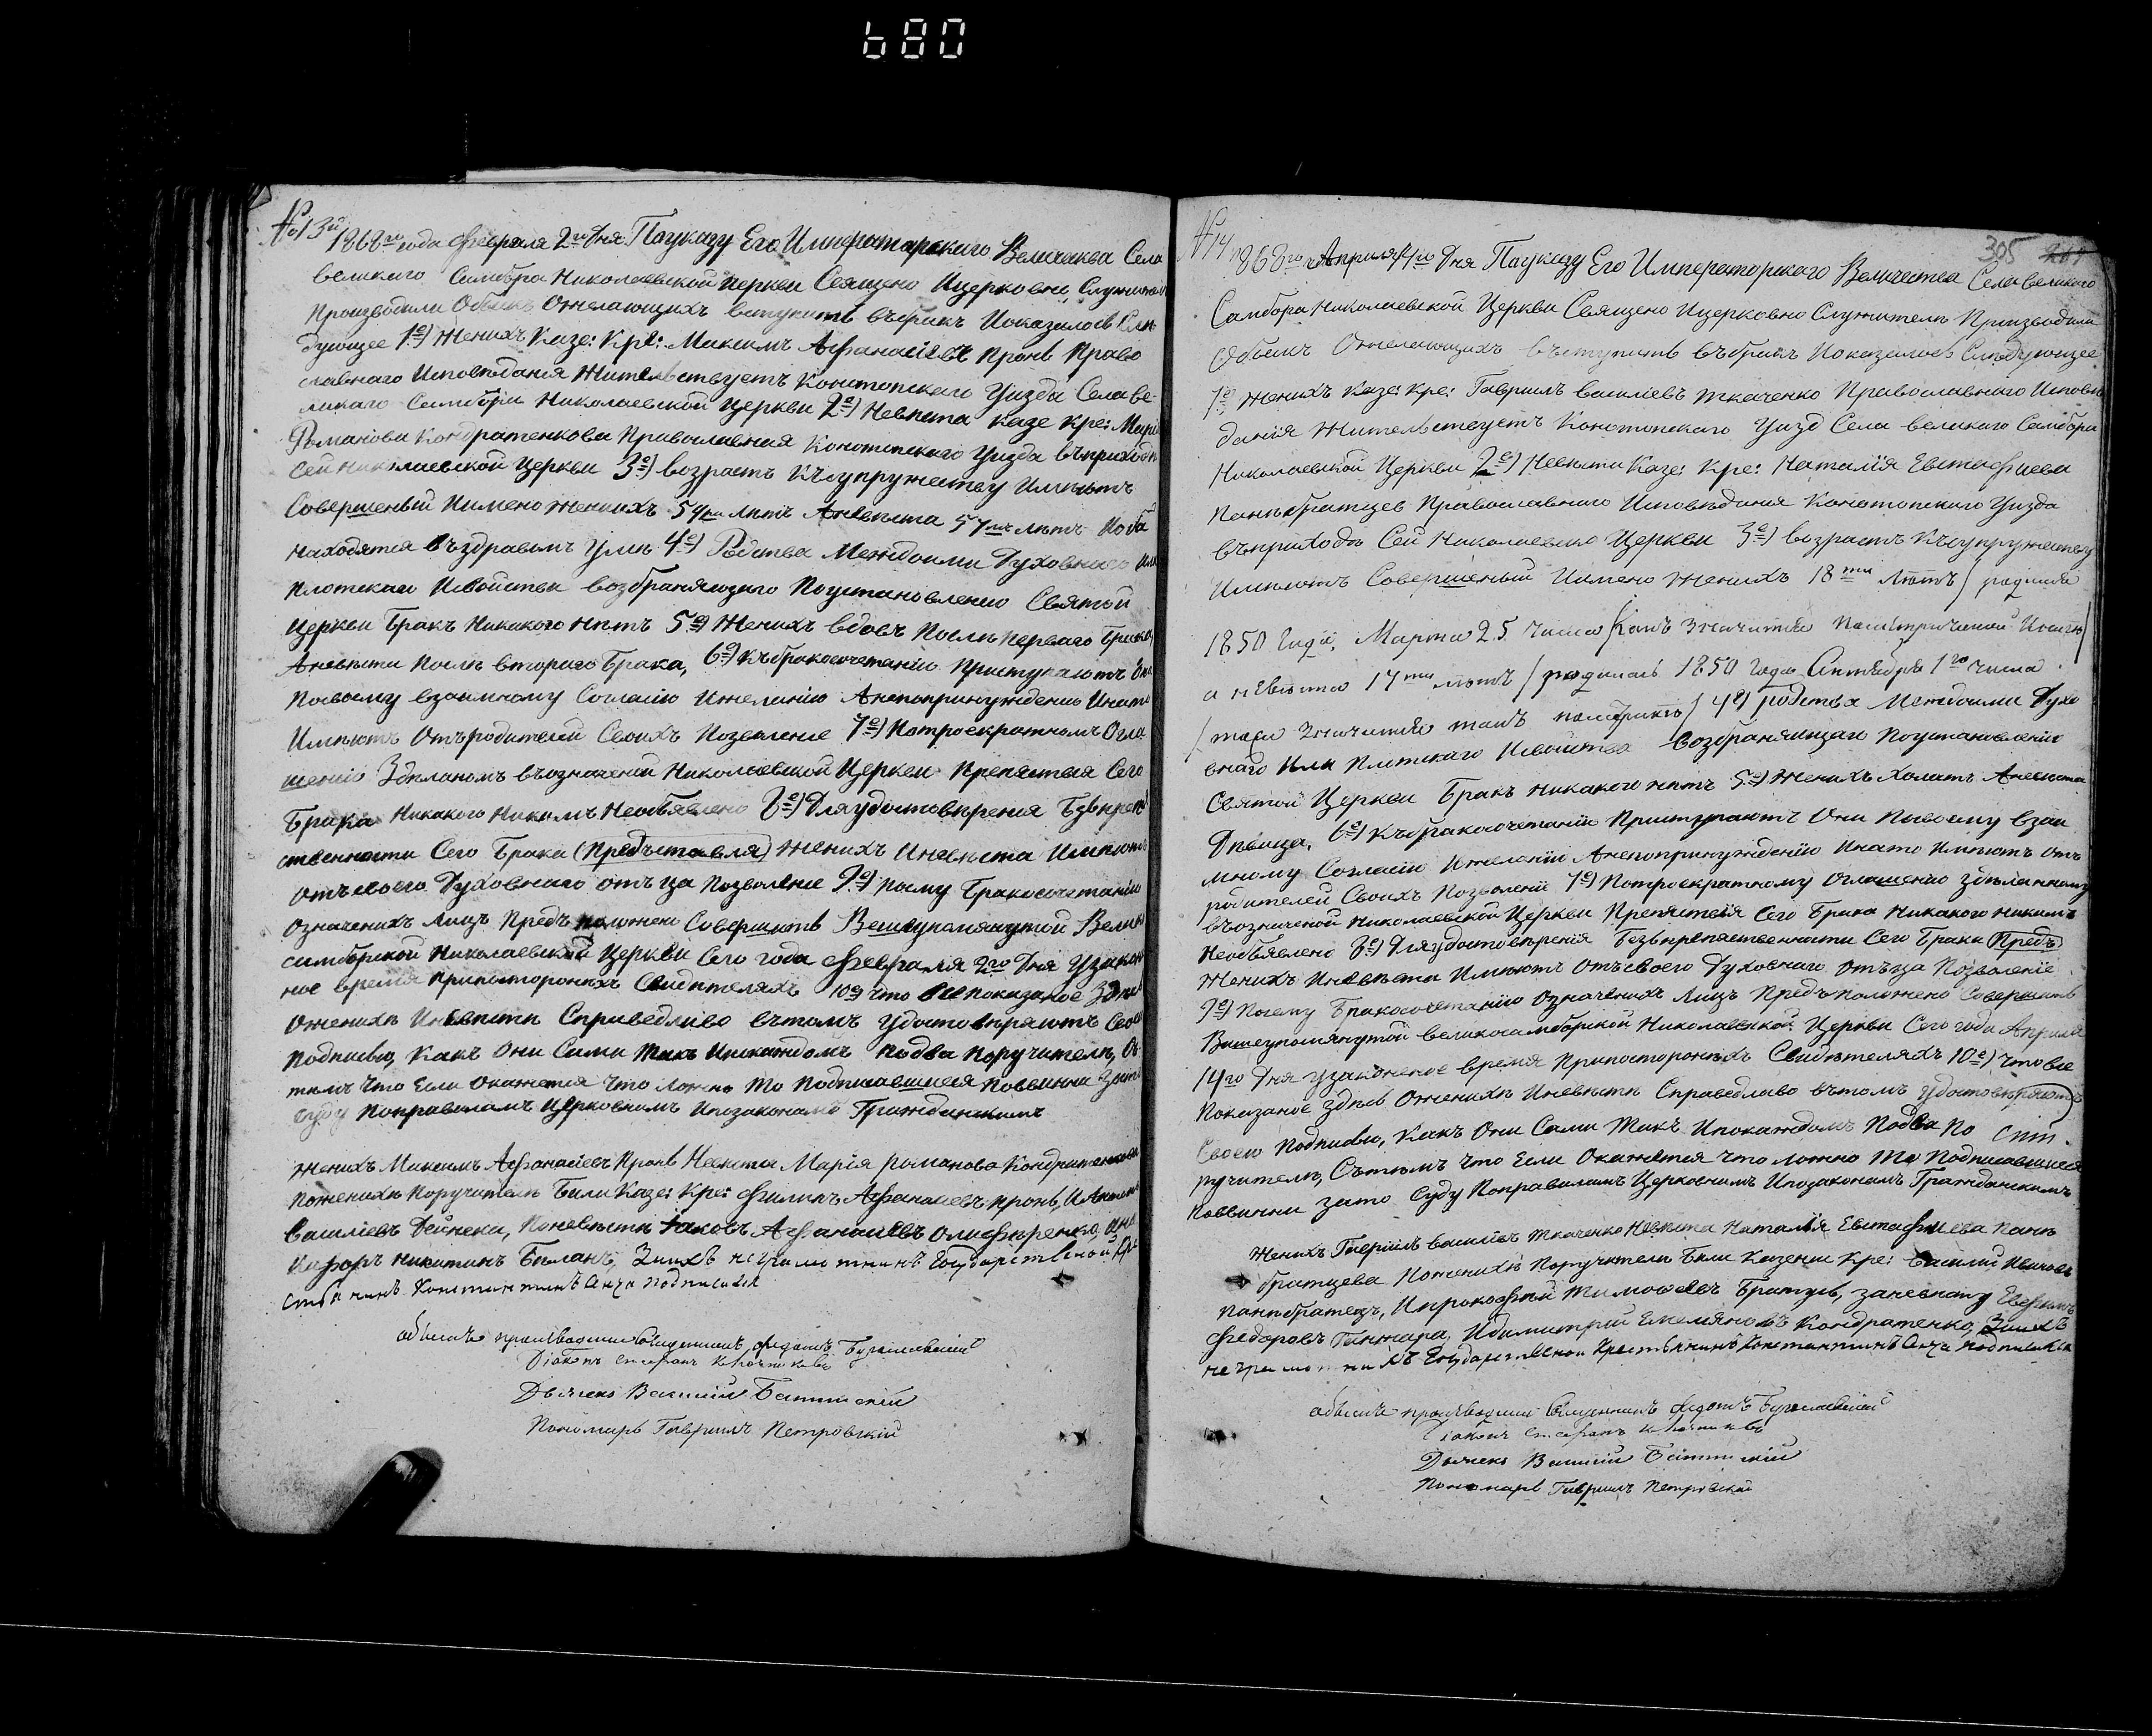 680
№ 13й
1868го года Февраля 2го Дня Поуказу Его Императорского Величаква Села
великого Самбора Николаевской церкви Священо Ицерковно Служители
Производили Обыскъ Ожелающихъ вступить въбракъ Иоказалось Слѣ
дующее 1е) Женихъ Казе: Кре: Максимъ Афанасіевъ Пронь Право
славнаго Исповѣдания Жительствуетъ Конотопского Уизда Села ве
ликаго Самбора Николаевской Церкви 2е) Невѣста Казе Кре: Марія
Романова Кондратенкова Православная Конотопского Уизда въприходѣ
сей Николаевской Церкви 3е) возрастъ Ксупружеству Имѣютъ
Совершеный Имено женихъ 54ри лѣтъ Аневѣста 57мъ лѣтъ Иоба
находятся въздравомъ Умѣ 4е) Родства Междоими Духовного или
плотскаго Исвойства возбраняющаго Поустановлению Святой
Церкви Бракъ никакого нѣтъ 5е) Женихъ вдовъ Послѣ первого брака,
Аневѣста послѣ второго Брака, 6е) Къбракосочетанію Приступаютъ Они
Посвоему взаимному Согласію Ижеланію Анепопринуждению Инато
Имѣютъ Отъродителей Своихъ Позволение 7е) Потроекратномъ Огла
шенію Здѣланомъ въозначеной Николаевской Церкви Препяствия Сего
Брака Никакого Никимъ Необявлено 8е) Дляудостовѣрения Безвпрепя
ственности Сего Брака (Предъставля) Женихъ Иневѣста Имѣютъ
отъсвоего Духовнаго отъца позволение 9е) посму Бракосочетанію
означенихъ лицъ Предъположено Совершитъ Вешеупомянутой Велико
самборской Николаевской Церкви Сего года Февраля 2го Дня Узакон
ное время припосторонихъ Свидѣтеляхъ 10е) что все показаное Здѣсь
Оженихѣ Иневѣсти Справедливо вътомъ удостовѣряютъ Своею
подписью, какъ Они Сами такъ Ипокаждомъ подва поручители, Съ
тимъ что если окажется что ложно то подписавшиеся повинни Зато
суду поправиламъ Церковнимъ Ипозаконамъ Гражданскимъ
Женихъ Максимъ Афанасіевъ Пронь Невѣста Марія Романова Кондратенкова
Поженихѣ Поручители Били Казе: Кре: Филипъ Афанасиевъ Пронь, И Антонъ
Василіевъ Дейнека, Поневѣсти Іаковъ Афанасиевъ Олифиренко, Ини
кифоръ Никитинъ Биланъ, Заихъ неграмотнихъ Государственой Кре
стянинъ Константинъ Анча подписался
обыскъ производили Священникъ Федотъ Бугославскій
Діаконъ Стефанъ
Дьячекъ Василій
Пономарь Гавриилъ Петровскій
№ 14
305
1868го Априля 14го Дня Поуказу Его Императорского Величества Села великого
Самбора Николаевской Церкви Священо Ицерковно Служители Производили
Обыскъ Ожелающихъ въступить въбракъ Иоказалось Слѣдующее
1е) Женихъ Казе: Кре: Гавриилъ василіевъ Ткаченко Православнаго Исповѣ
данія Жительствуетъ Конотопскаго Уизд Села великого Самбора
Николаевской Церкви 2е) Невѣста Казе: Кре: Наталія Евстафиева
Панибратцев Православнаго Исповѣдания Конотопскаго Уизда
въприходѣ Сей Николаевско Церкви 3е) возрастъ Късупружеству
Имѣютъ Совершеный Имено Женихъ 18ти лѣтъ / родился
1850 Года, Марта 25 числа / какъ значится
а невѣста 17ти лѣтъ / родилась 1850 Года Октября 1го числа
/ таси значится такъ пометрикѣ / 4е) родства Междоими Духо
внаго Или Плотскаго Исвойства возбраняющаго Поустановлению
Святой Церкви Бракъ никакого нѣтъ 5е) Женихъ холостъ Аневѣста
Дѣвица, 6е) Къбракосочетанію Приступаютъ Они Посвоему взаи
мному Согласію Ижеланію Анепопринуждению Инато Имѣютъ отъ
родителей Своихъ Позволение 7е) Потроекратному Оглашению здѣланному
въозначеной Николаевской Церкви Препятствія Сего Брака Никакого никимъ
Необявлено 8е) Дляудостовѣрения Безвпрепяственности Сего Брака (Предъ)
Женихъ Иневѣста Имѣютъ отъсвоего Духовнаго отъца Позволеніе
9е) Посему Бракосочетанію Означенихъ Лицъ Предъположено Совершитъ
Вишеупомянутой великосамборской Николаевской Церкви Сего года Априля
14го Дня узаконеное время Припосторонихъ Свидѣтеляхъ 10е) что все
Показаное здѣсь Оженихѣ Иневѣсти Справедливо вътомъ удостовѣряютъ
Своею подписью, какъ Они Сами такъ Ипокаждомъ Подва По
ручители, Сътимъ что если Окажется что ложно то Подписавшиеся
повинни зато Суду Поправиламъ Церковнимъ Ипозаконамъ Гражданскимъ
Женихъ Гавриилъ василіевъ Ткаченко Невѣста Наталія Евстафиева Пани
братцева Поженихѣ Поручители Били Казеныи Кре: Василий Ивановъ
Панибратецъ, Ипрокофий Тимофеевъ Братусь, заневѣсту Евфимъ
Федоровъ Ганжара, Идимитрий Емеляновъ Кондратенко, Заихъ
неграмотнихъ Государственой Крестянинъ Константинъ Анча подписался
обыскъ производили Священникъ Федотъ Бугославскій
Діаконъ Стефанъ
Дьячекъ Василій
Пономарь Гавриилъ Петровскій